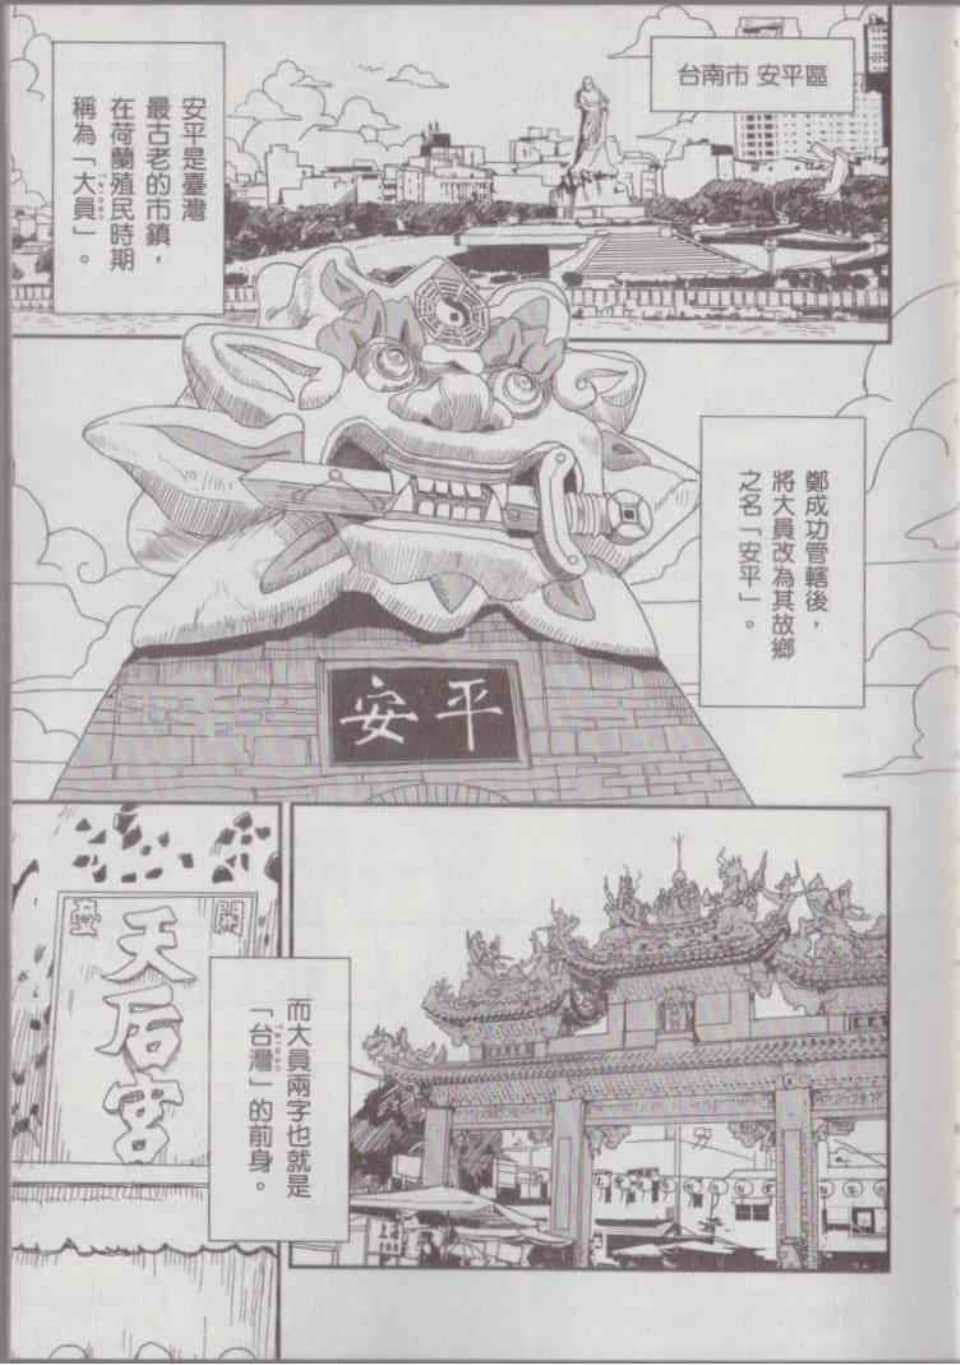 台南市 安平區
安平是臺灣
最古老的市鎮，
在荷蘭殖民時期
稱為「大員」。
鄭成功管轄後，
將大員改為其故鄉
之名「安平」。
安平
而大員兩字也就是
「台灣」的前身。
開臺
天后宮